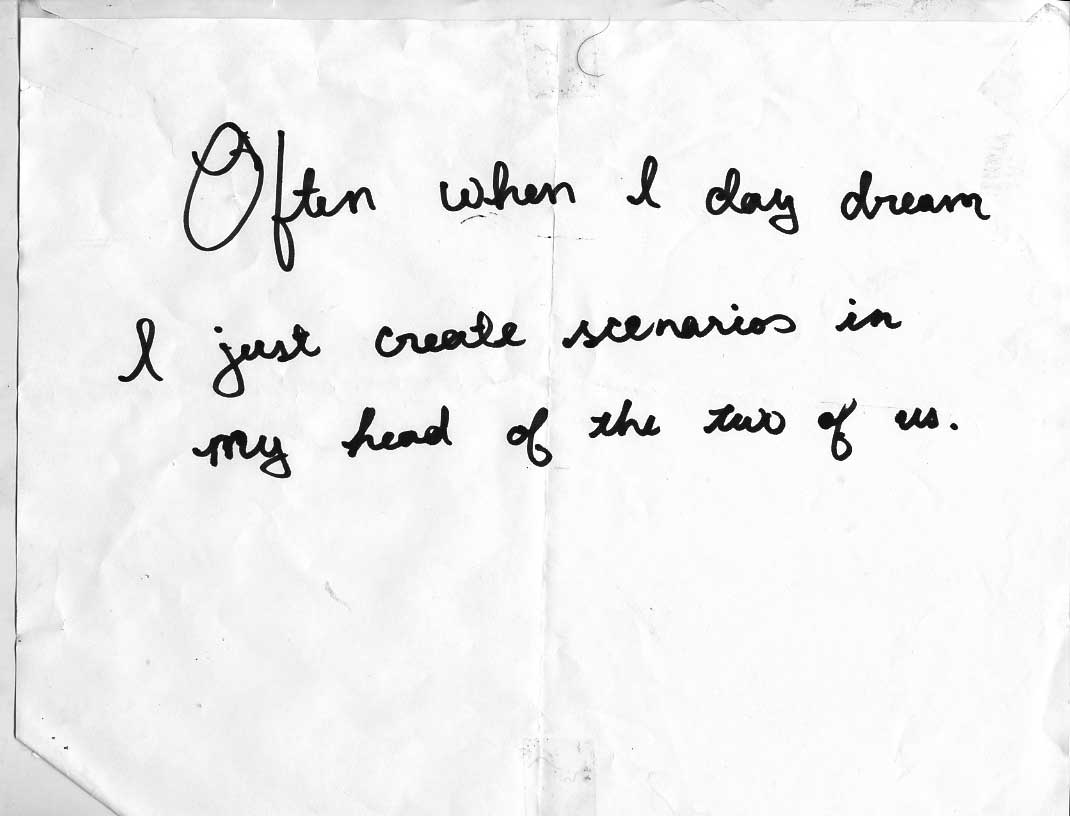 Often when I day dream
I just create scenarios in
my head of the two of us.